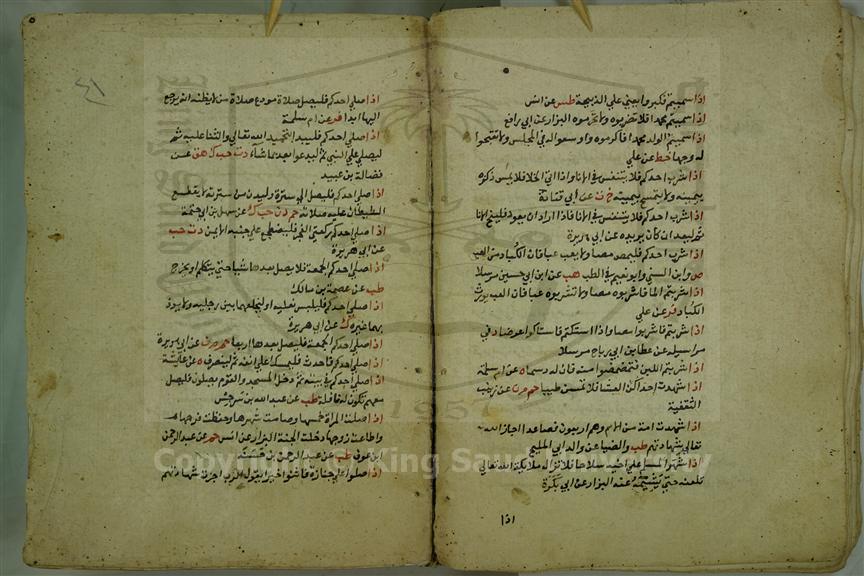 اذا سميتم فكبروا يعني علي الذبيحة طس عن انس
اذا سميتم محمدا فلا تضربوه ولا تحرموه البزار عن ابي رافع
اذا سميتم الولد محمدا فاكرموه واوسعوا له في المجلس ولا تقبحوا
له وجها خط عن علي
اذا شرب احدكم فلا يتنفس في الانا واذا اتي الخلا فلا يمس ذكره
بيمينه ولا يتمسح بيمينه خ ت عن ابي قتادة
اذا شرب احدكم فلا يتنفس في الانا فاذا اراد ان يعود فلينح الانا
ثم ليعد ان كان يريد ه عن ابي هريرة
اذا شرب احدكم فليمص مصا ولا يعب عبا فان الكباد من العب
ص وابن السني وابو نعيم في الطب هب عن ابن ابي حسين مرسلا
اذا شربتم الما فاشربوه مصا ولا تشربوه عبا فان العب يورث
الكباد فر عن علي
اذا شربتم فاشربوا مصا واذا استكتم فاستاكوا عرضا د في
مراسيله عن عطا بن ابي رباح مرسلا
اذا شربتم اللبن فتمضمضوا منه فان له دسما ه عن ام سلمة
اذا شهدت احداكن العشا فلا تمس طيبا حم م ن عن زينب
الثقفية
اذا شهدت امة من الامم وهم اربعون فصاعدا اجاز الله
تعالي شهادتهم طب والضيا عن والد ابي المليح
اذا شهر المسلم علي اخيه سلاحا فلا تزال ملايكة الله تعالي
تلعنه حتي يشيمه عنه البزار عن ابي بكرة
اذا
٤١
اذا صلي احدكم فليصل صلاة مودع صلاة من لا يظن انه يرجع
اليها ابدا فر عن ام سلمة
اذا صلي احدكم فليبدا بتحميد الله تعالي والثنا عليه ثم
ليصلي علي النبي ثم ليدعوا بعد بما شاء د ت حب ك هق عن
فضالة بن عبيد
اذا صلي احدكم فليصل الي سترة وليدن من سترته لا يقطع
الشيطان عليه صلاته حم د ن حب ك عن سهل بن ابي حثمة
اذا صلي احدكم ركعتي الفجر فليضطجع علي جنبه الايمن د ت حب
عن ابي هريرة
اذا صلي احدكم الجمعة فلا يصل بعدها شيا حتي يتكلم او يخرج
طب عن عصمة بن مالك
اذا صلي احدكم فليلبس نعليه او ليخلعهما بين رجليه ولا يوذ
بهما غيره ك عن ابي هريرة
اذا صلي احدكم الجمعة فليصل بعدها اربعا حم م ن عن ابي هريرة
اذا صلي احدكم فاحدث فليمسك علي انفه ثم لينصرف ه عن عايشة
اذا صلي احدكم في بيته ثم دخل المسجد والقوم يصلون فليصل
معهم تكون له نافلة طب عن عبد الله بن سرجس
اذا صلت المراة خمسها وصامت شهرها وحفظت فرجها
واطاعت زوجها دخلت الجنة البزار عن انس حم عن عبد الرحمن
ابن عوف طب عن عبد الرحمن بن حسنة
اذا صلوا علي جنازة فاثنوا خيرا يقول الرب اجزت شهادتهم
Copyright © King Saud University
1957